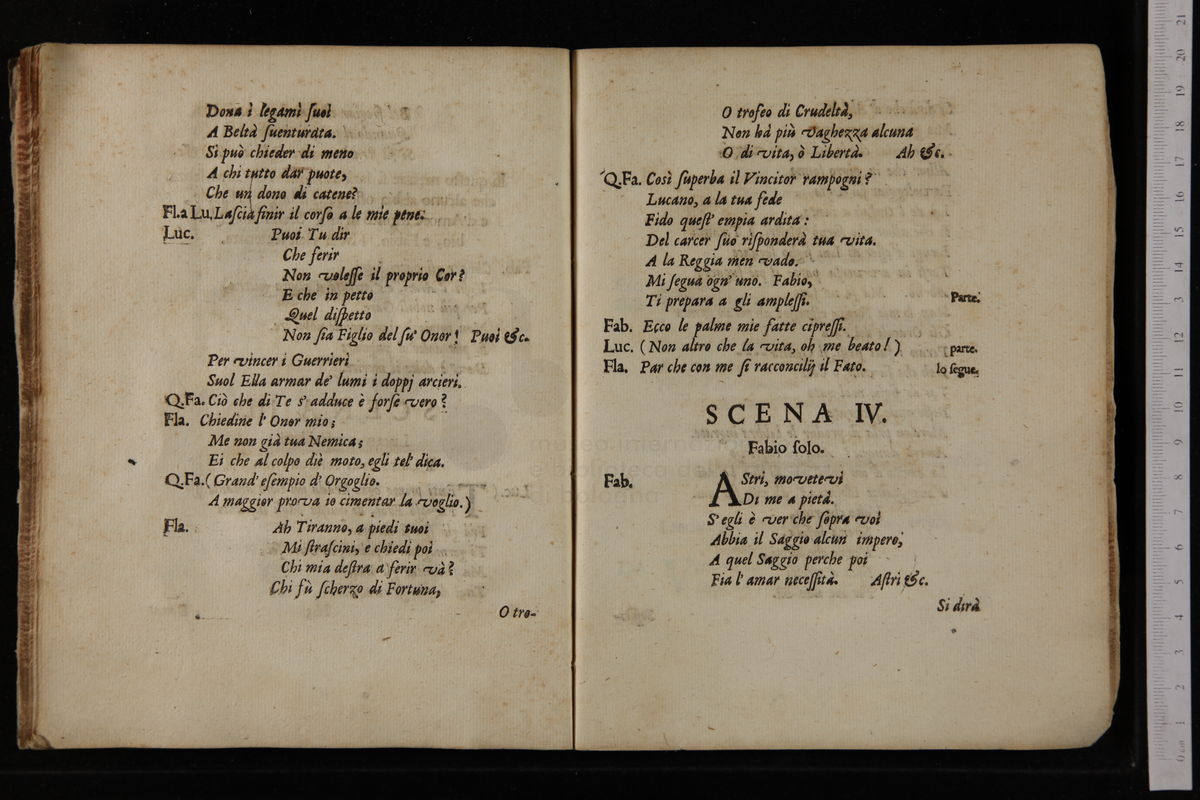 Dona i legami ſuoi
A Beltà ſuenturata.
Si può chieder di meno
A chi tutto dar puote,
Che un dono di catene?
Fl.a Lu. Laſcia finir il corſo a le mie pene.
Luc. Puoi Tu dir
Che ferir
Non voleſſe il proprio Cor?
E che in petto
Quel diſpetto
Non ſia Figlio del ſu' Onor! Puoi &c.
Per vincer i Guerrieri
Suol Ella armar de' lumi i doppj arcieri.
Q.Fa. Ciò che di Te s' adduce è forſe vero?
Fla. Chiedine l' Onor mio;
Me non già tua Nemica;
Ei che al colpo diè moto, egli tel' dica.
Q.Fa. (Grand' eſempio d' Orgoglio.
A maggior prova io cimentar la voglio.)
Fla. Ah Tiranno, a piedi tuoi
Mi ſtraſcini, e chiedi poi
Chi mia deſtra a ferir và?
Chi fù ſcherzo di Fortuna,
O tro-
O trofeo di Crudeltà,
Non hà più vaghezza alcuna
O di vita, ò Libertà. Ah &c.
Q.Fa. Così ſuperba il Vincitor rampogni?
Lucano, a la tua fede
Fido queſt' empia ardita:
Del carcer ſuo riſponderà tua vita.
A la Reggia men vado.
Mi ſegua ogn' uno. Fabio,
Ti prepara a gli ampleſſi. Parte.
Fab. Ecco le palme mie fatte cipreſſi.
Luc. (Non altro che la vita, oh me beato!) parte.
Fla. Par che con me ſi racconcilij il Fato. lo ſegue.
SCENA IV.
Fabio ſolo.
Fab. AStri, movetevi
Di me a pietà.
S' egli è ver che ſopra voi
Abbia il Saggio alcun impero,
A quel Saggio perche poi
Fia l' amar neceſſità. Aſtri &c.
Si dirà
0 cm 1 2 3 4 5 6 7 8 9 10 11 12 13 14 15 16 17 18 19 20 21